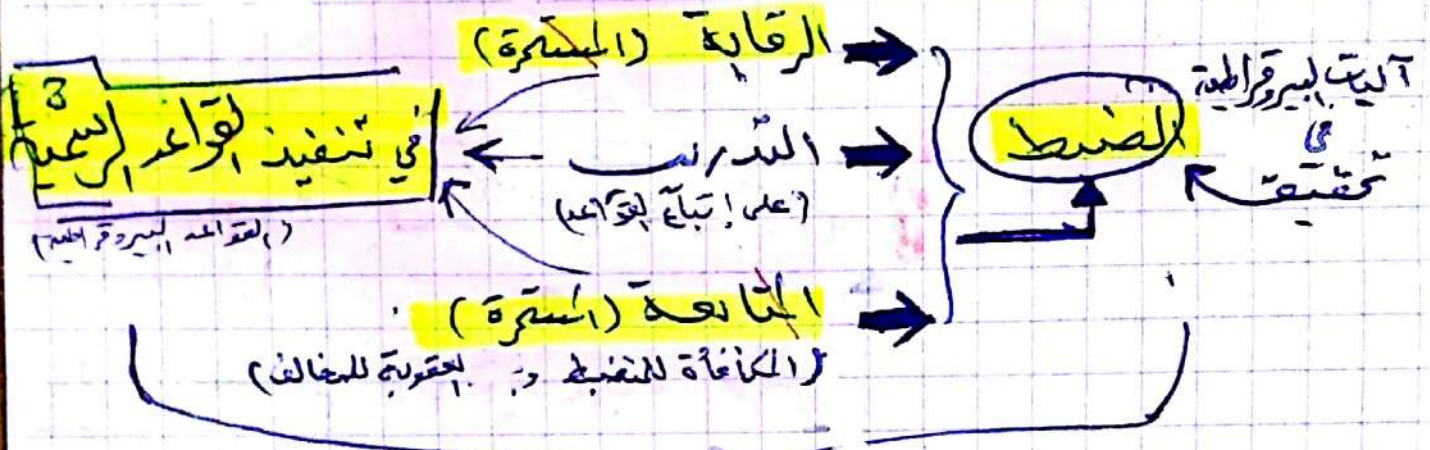 آليات البيروقراطية
في
تحقيق
الضبط
الرقابة (المستمرة)
التدريب
(على إتباع القواعد)
المتابعة (المستمرة)
(المكافأة للمنضبط و العقوبة للمخالف)
3
في تنفيذ القواعد الرسمية
(القواعد البيروقراطية)